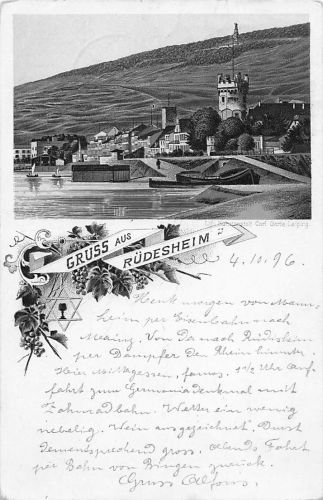 Carl Garte, Leipzig.
GRUSS AUS
RÜDESHEIM
4.10.96.
Heut morgen von Mann-
heim per Eisenbahn nach
Mainz. Von da nach Rüdesheim
per Dampfer den Rhein hinunter.
Hier Mittagessen, famos. 1½ Uhr Auf-
fahrt zum Germaniadenkmal mit
Zahnradbahn. Wetter ein wenig
nebelig. Wein ausgezeichnet, Durst
dementsprechend gross. Abends Fahrt
per Bahn von Bingen zurück.
Gruss Alfons.